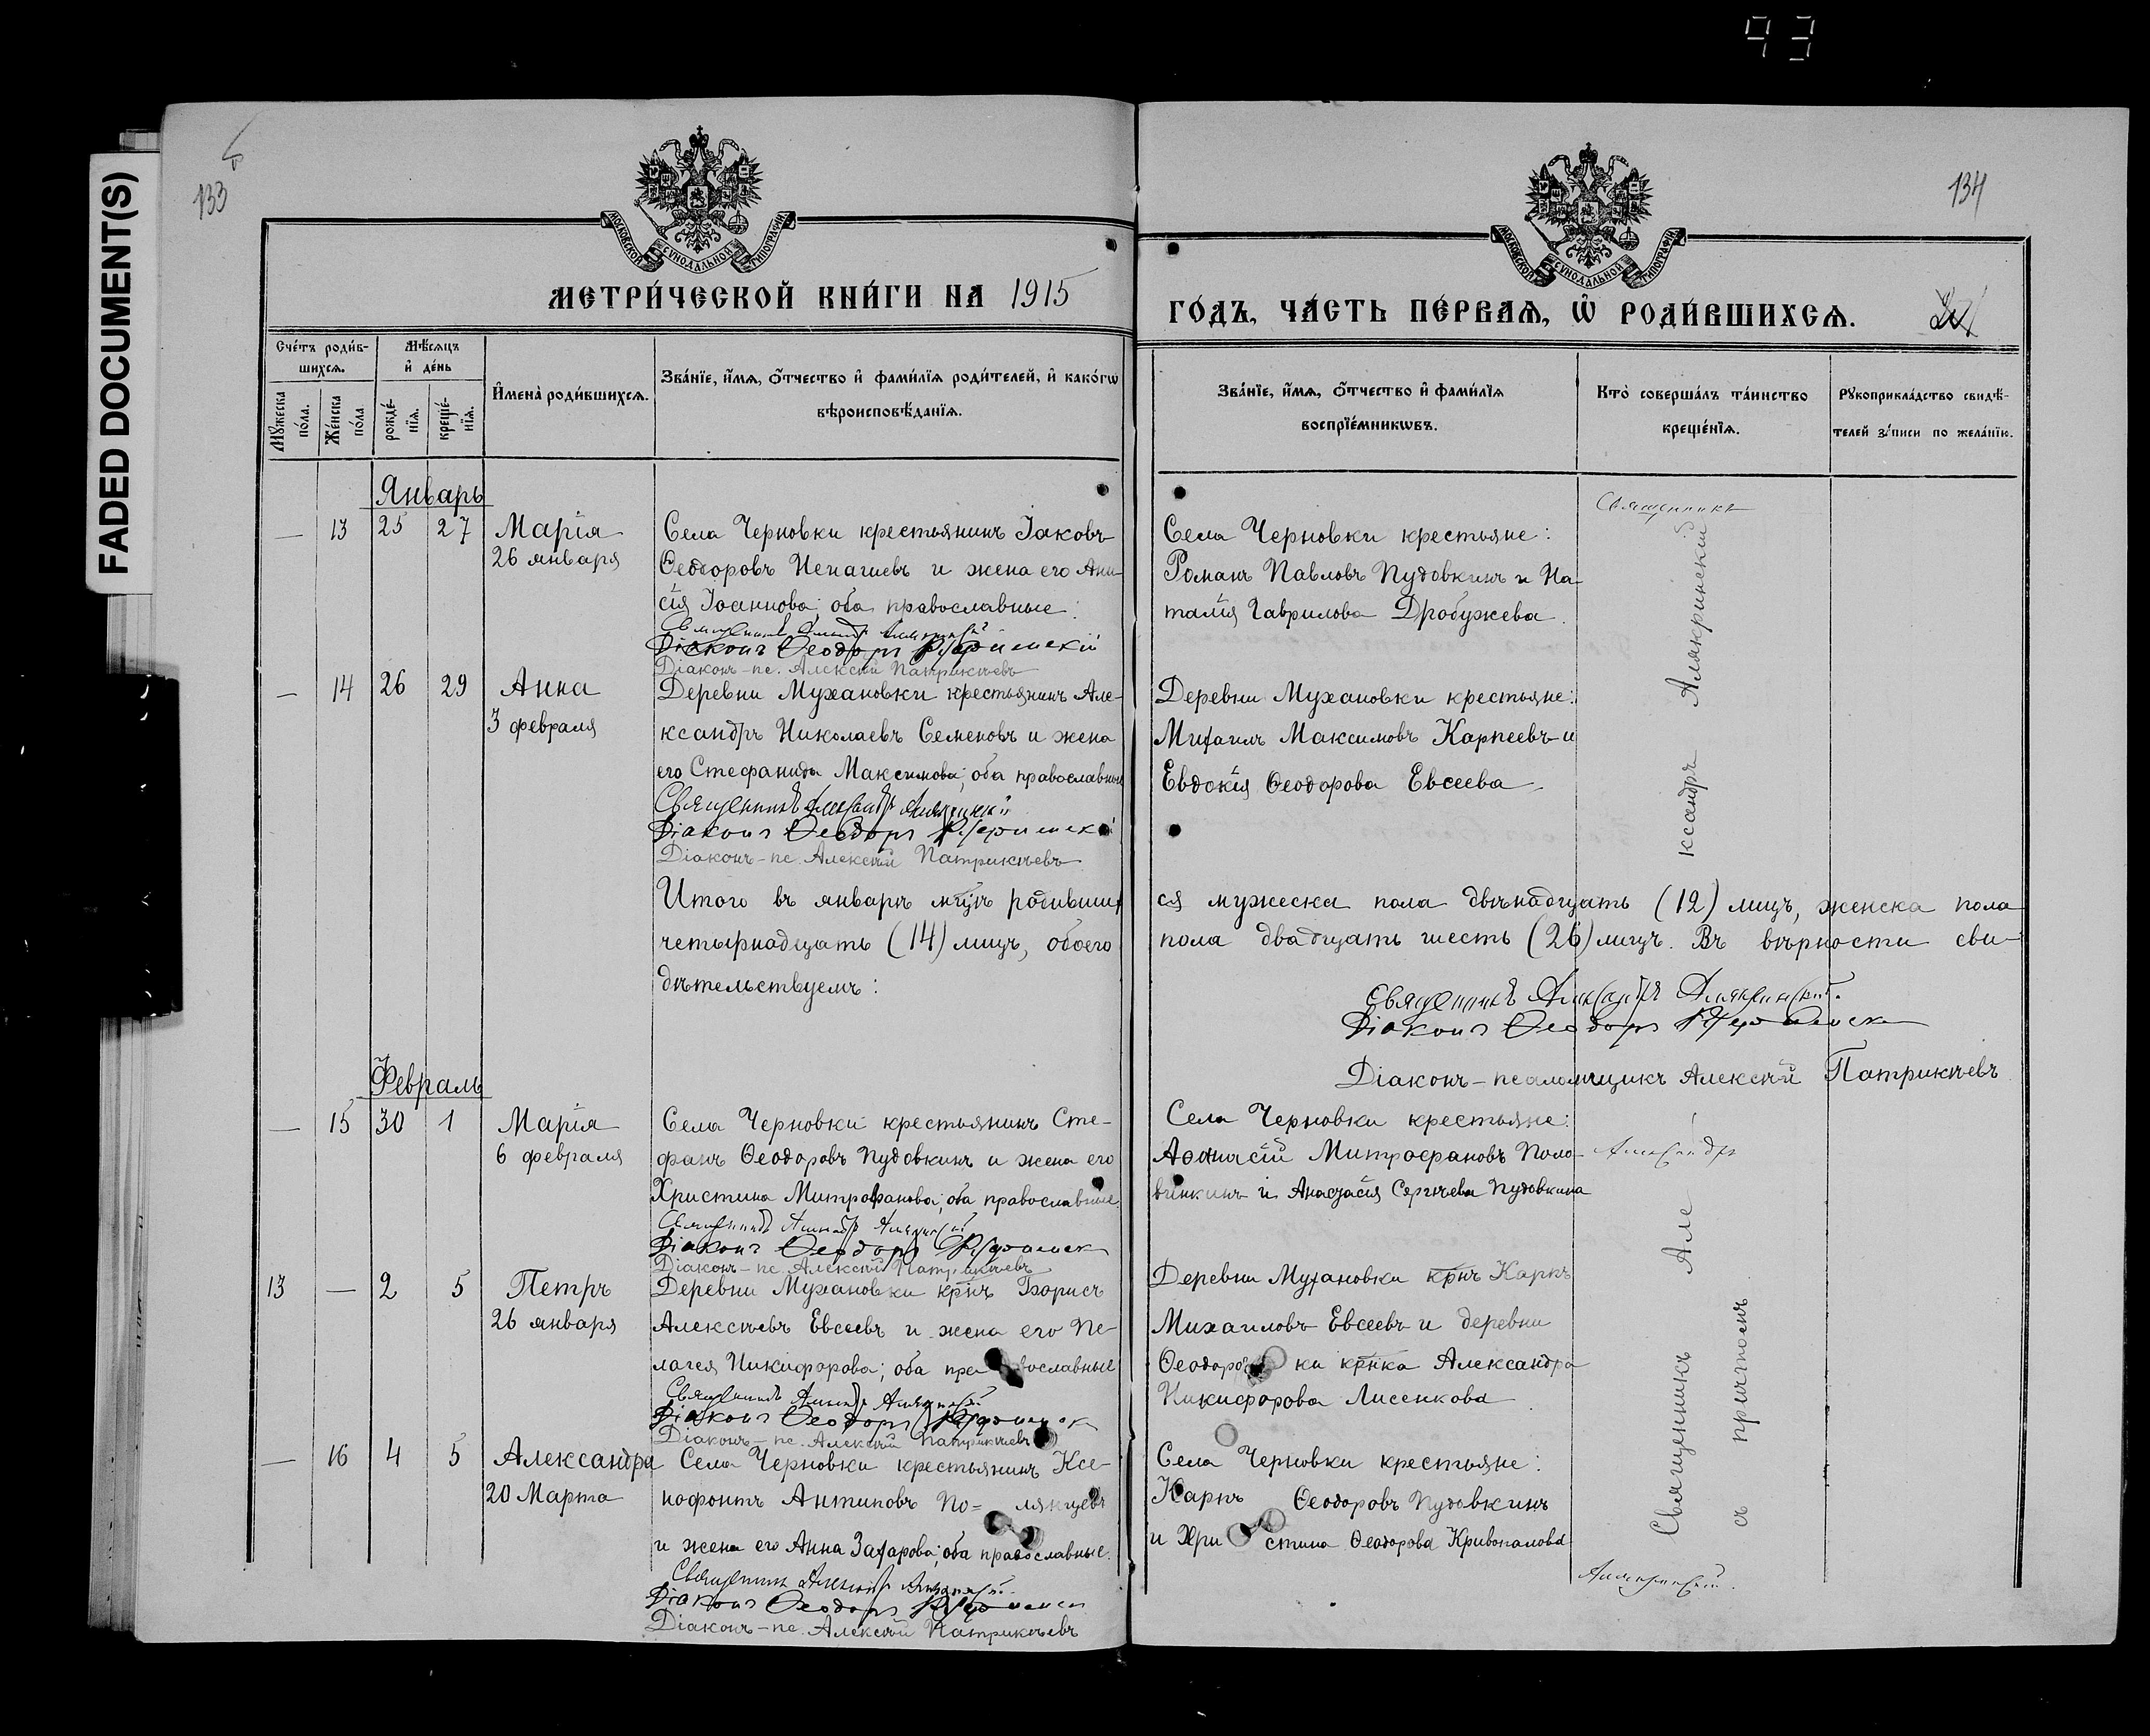 93
FADED DOCUMENT(S)
133
134
МОСКОВСКОЙ СѴНОДАЛЬНОЙ ТИПОГРАФІИ
МОСКОВСКОЙ СѴНОДАЛЬНОЙ ТИПОГРАФІИ
МЕТРИ́ЧЕСКОЙ КНИ́ГИ НА 1915
ГО́ДЪ, ЧА́СТЬ ПЕ́РВАѦ, Ѡ҆ РОДИ́ВШИХСѦ.
Сче́тъ роди́в-
шихсѧ.
Мꙋ́жеска по́ла.
Же́нска по́ла
Мѣ́сѧцъ
и҆ де́нь
рожде́-
нїѧ.
креще́-
нїѧ.
И҆мена̀ роди́вшихсѧ.
Зва́нїе, и҆́мѧ, ѻ҆́тчество и҆ фами́лїѧ роди́телей, и҆ како́гѡ
вѣроисповѣ́данїѧ.
Зва́нїе, и҆́мѧ, ѻ҆́тчество и҆ фами́лїѧ
воспрїе́мникѡвъ.
Кто̀ соверша́лъ та́инство
креще́нїѧ.
Рꙋкоприкла́дство свидѣ́-
телей за́писи по жела́нїю.
Январь
— 13 25 27 Марія
26 января
Села Черновки крестьянинъ Іаковъ
Ѳеодоровъ Ненашевъ и жена его Ани-
сія Іоаннова; оба православные:
Священникъ Александръ Алякринскій
Діаконъ Ѳеодоръ
Діаконъ-пс. Алексѣй Патрикѣевъ
Села Черновки крестьяне:
Романъ Павловъ Пудовкинъ и На-
талія Гаврилова Дробужева.
Священникъ
Александръ Алякринскій
— 14 26 29 Анна
3 февраля
Деревни Мухановки крестьянинъ Але-
ксандръ Николаевъ Семеновъ и жена
его Стефанида Максимова; оба православные
Священникъ Александръ Алякринскій
Діаконъ Ѳеодоръ
Діаконъ-пс. Алексѣй Патрикѣевъ
Деревни Мухановки крестьяне:
Михаилъ Максимовъ Карпеевъ и
Евдокія Ѳеодорова Евсеева
Итого въ январѣ мѣцѣ родивших
ся мужеска пола двѣнадцать (12) лицъ, женска пола
четырнадцать (14) лицъ, обоего
пола двадцать шесть (26) лицъ. Въ вѣрности сви-
дѣтельствуемъ:
Священникъ Александръ Алякринскій.
Діаконъ Ѳеодоръ
Діаконъ-псаломщикъ Алексѣй Патрикѣевъ
Февраль
— 15 30 1 Марія
6 февраля
Села Черновки крестьянинъ Сте-
фанъ Ѳеодоровъ Пудовкинъ и жена его
Христина Митрофанова; оба православные.
Священникъ Александръ Алякринскій
Діаконъ Ѳеодоръ
Діаконъ-пс. Алексѣй Патрикѣевъ
Села Черновки крестьяне:
Аѳанасій Митрофановъ Поло-
винкинъ и Анастасія Сергѣева Пудовкина
Александръ
13 — 2 5 Петръ
26 января
Деревни Мухановки крнъ Борисъ
Алексѣевъ Евсеевъ и жена его Пе-
лагея Никифорова; оба православные
Священникъ Александръ Алякринскій
Діаконъ Ѳеодоръ
Діаконъ-пс. Алексѣй Патрикѣевъ
Деревни Мухановки крнъ Карпъ
Михаиловъ Евсеевъ и деревни
Ѳеодоров ки крнка Александра
Никифорова Лисенкова
Священникъ Але
съ причтомъ
— 16 4 5 Александра
20 Марта
Села Черновки крестьянинъ Ксе-
нофонтъ Антиповъ По- лянцевъ
и жена его Анна Захарова; оба православные.
Священникъ Александръ Алякринскій
Діаконъ Ѳеодоръ
Діаконъ-пс. Алексѣй Патрикѣевъ
Села Черновки крестьяне:
Карпъ Ѳеодоровъ Пудовкинъ
и Хри стина Ѳеодорова Кривопалова
Алякринскій.